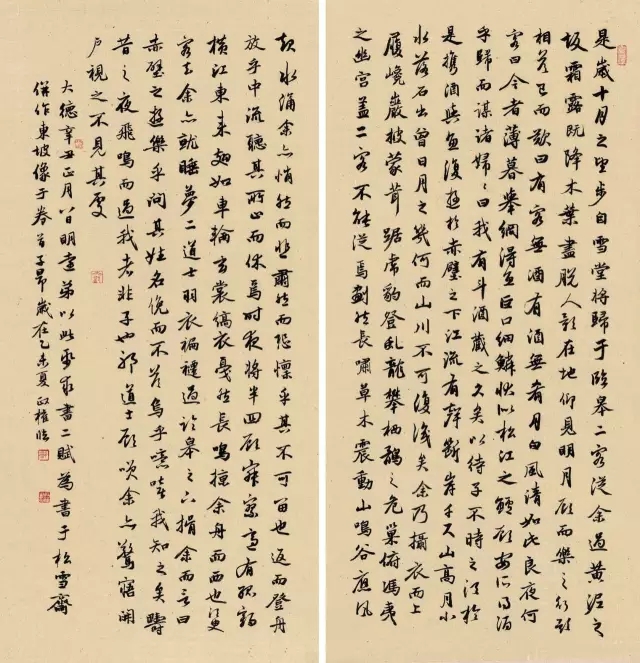 是歲十月之望步自雪堂將歸于臨皋二客從余過黃泥之
坂霜露既降木葉盡脫人影在地仰見明月顧而樂之行歌
相答已而歎曰有客無酒有酒無肴月白風清如此良夜何
客曰今者薄暮舉網得魚巨口細鱗狀似松江之鱸顧安所得酒
乎歸而謀諸婦〻曰我有斗酒藏之久矣以待子不時之須於
是攜酒與魚復遊於赤壁之下江流有聲斷岸千尺山高月小
水落石出曾日月之幾何而山川不可復識矣余乃攝衣而上
履巉巖披蒙茸踞虎豹登虬龍攀栖鶻之危巢俯馮夷
之幽宮蓋二客不能從焉劃然長嘯草木震動山鳴谷應風
起水涌余亦悄然而悲肅然而恐懍乎其不可留也返而登舟
放乎中流聽其所止而休焉時夜將半四顧寂寥適有孤鶴
橫江東來翅如車輪玄裳縞衣戛然長鳴掠余舟而西也須臾
客去余亦就睡夢二道士羽衣褊褼過臨皋之下揖余而言曰
赤壁之遊樂乎問其姓名俛而不答烏乎噫嘻我知之矣疇
昔之夜飛鳴而過我者非子也耶道士顧笑余亦驚寤開
戶視之不見其處
大德辛丑正月八日明遠弟以此紙求書二賦為書于松雪齋
併作東坡像于卷首子昂 歲在乙未夏 臨